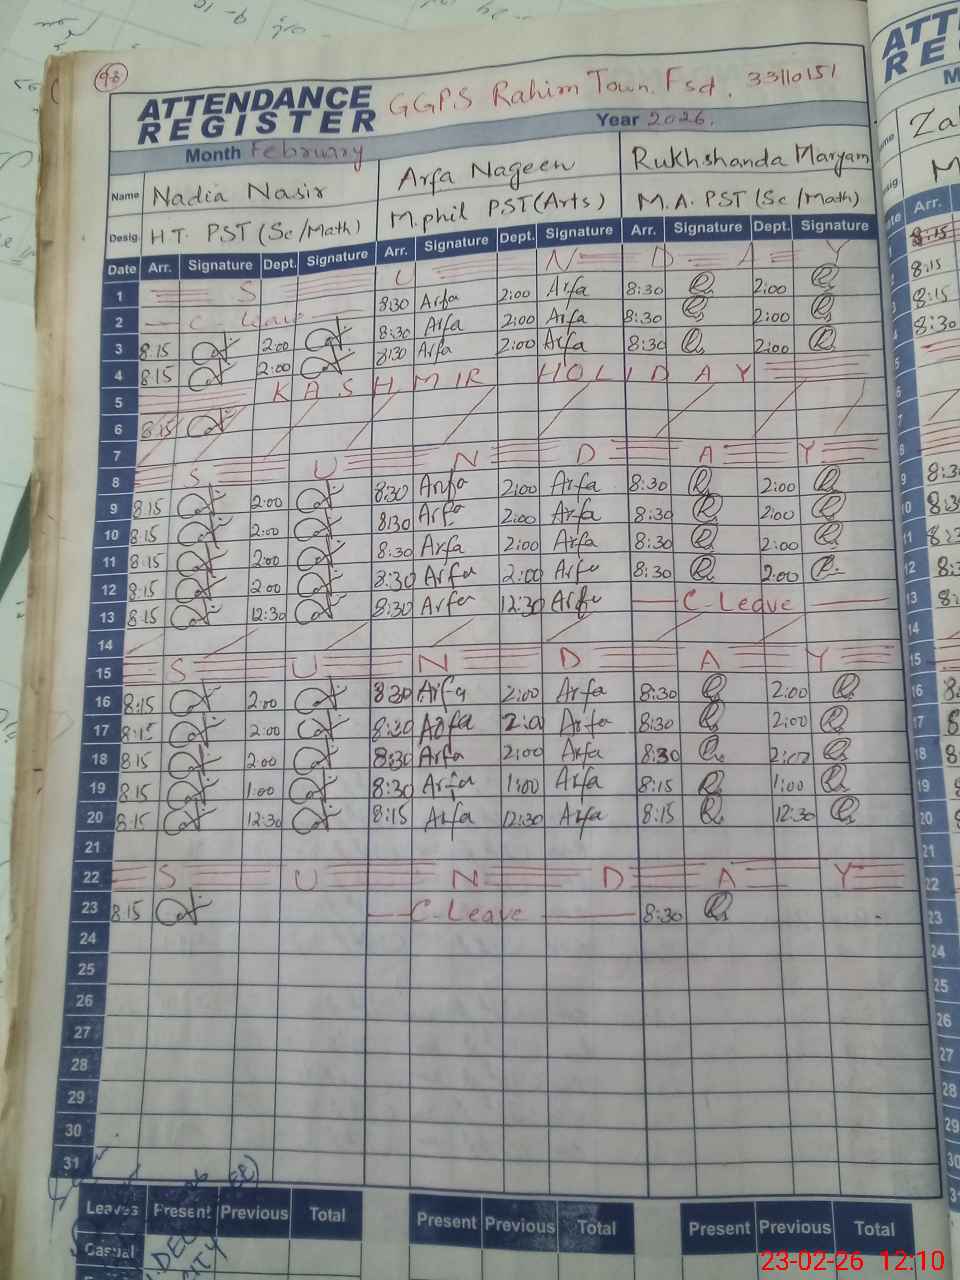 98
ATTENDANCE REGISTER GGPS Rahim Town. Fsd. 33110151
Month February Year 2026.
Name Nadia Nasir Arfa Nageen Rukhshanda Maryam
Desig. H.T. PST (Sc/Math) M.phil PST (Arts) M.A. PST (Sc/Math)
Date Arr. Signature Dept. Signature Arr. Signature Dept. Signature Arr. Signature Dept. Signature
1 S U N D A Y
2 C. Leave 8:30 Arfa 2:00 Arfa 8:30 2:00
3 8:15 2:00 8:30 Arfa 2:00 Arfa 8:30 2:00
4 8:15 2:00 8:30 Arfa 2:00 Arfa 8:30 2:00
5 KASHMIR HOLIDAY
6 8:15
7
8 S U N D A Y
9 8:15 2:00 8:30 Arfa 2:00 Arfa 8:30 2:00
10 8:15 2:00 8:30 Arfa 2:00 Arfa 8:30 2:00
11 8:15 2:00 8:30 Arfa 2:00 Arfa 8:30 2:00
12 8:15 2:00 8:30 Arfa 2:00 Arfa 8:30 2:00
13 8:15 12:30 8:30 Arfa 12:30 Arfa C-Leave
14
15 S U N D A Y
16 8:15 2:00 8:30 Arfa 2:00 Arfa 8:30 2:00
17 8:15 2:00 8:30 Arfa 2:00 Arfa 8:30 2:00
18 8:15 2:00 8:30 Arfa 2:00 Arfa 8:30 2:00
19 8:15 1:00 8:30 Arfa 1:00 Arfa 8:15 1:00
20 8:15 12:30 8:15 Arfa 12:30 Arfa 8:15 12:30
21
22 S U N D A Y
23 8:15 C-Leave 8:30
24
25
26
27
28
29
30
31
Leaves Present Previous Total Present Previous Total Present Previous Total
Casual
23-02-26 12:10